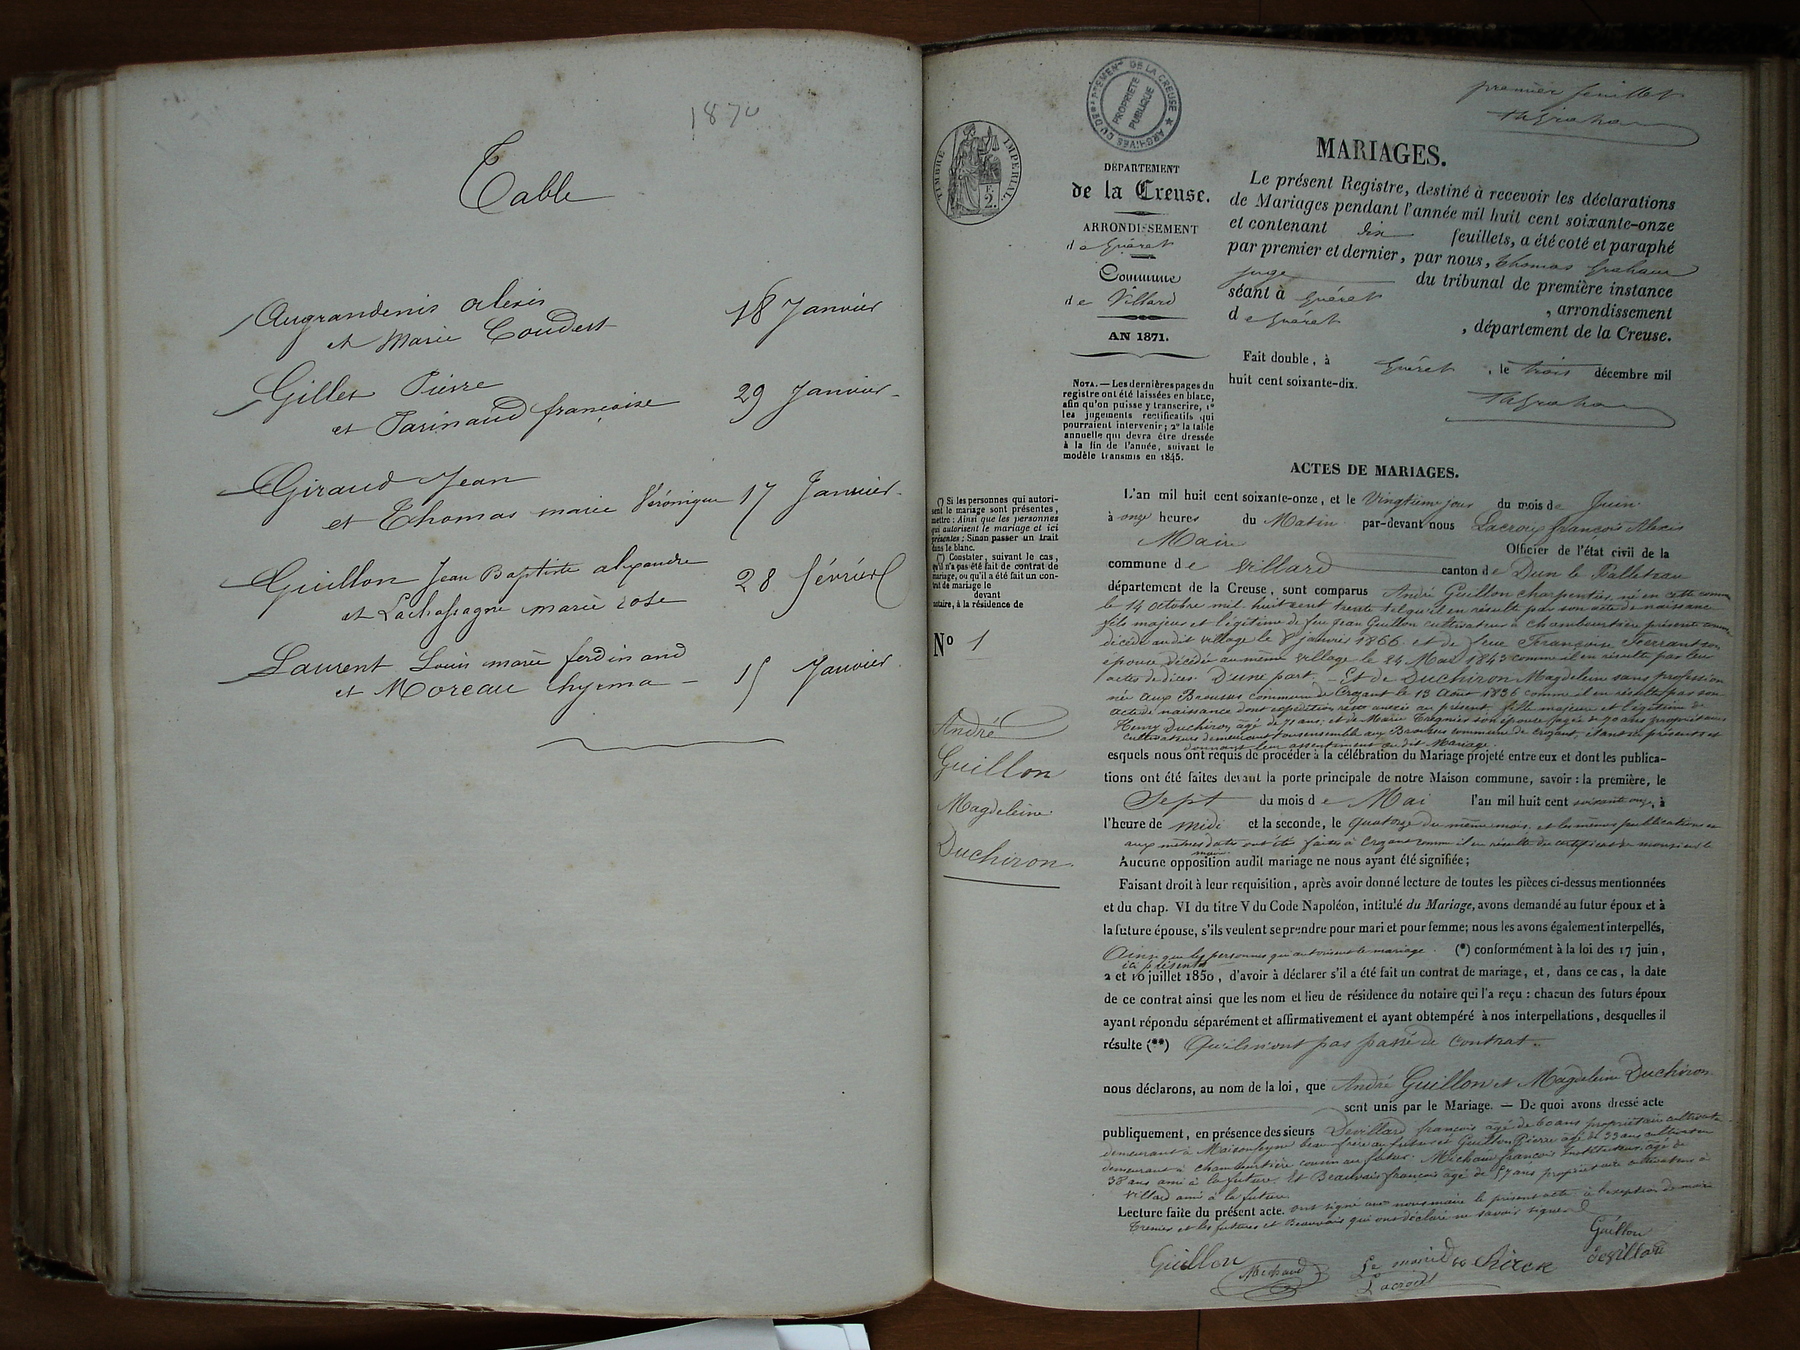 1870
Table
Augrandenis alexis
et Marie Coudert 18 Janvier
Gillet Pierre
et Parinaud françoise 29 Janvier
Giraud Jean
et Thomas marie Véronique 17 Janvier
Guillon Jean Baptiste alexandre
et Lachassagne marie rose 28 février
Laurent Louis marie ferdinand
et Moreau 15 Janvier
TIMBRE IMPERIAL
F.
2.
ARCHIVES DU DÉPARTEMENT DE LA CREUSE
PROPRIÉTÉ
PUBLIQUE
DÉPARTEMENT
de la Creuse.
ARRONDISSEMENT
de Guéret
Commune
de Villard
AN 1871.
NOTA. — Les dernières pages du
registre ont été laissées en blanc,
afin qu'on puisse y transcrire, 1º
les jugements rectificatifs qui
pourraient intervenir; 2º la table
annuelle qui devra être dressée
à la fin de l'année, suivant le
modèle transmis en 1845.
premier feuillet
MARIAGES.
Le présent Registre, destiné à recevoir les déclarations
de Mariages pendant l'année mil huit cent soixante-onze
et contenant dix feuillets, a été coté et paraphé
par premier et dernier, par nous, Thomas Graham
juge du tribunal de première instance
séant à Guéret , arrondissement
de Guéret , département de la Creuse.
Fait double, à Guéret , le trois décembre mil
huit cent soixante-dix.
(*) Si les personnes qui autori-
sent le mariage sont présentes,
mettre : Ainsi que les personnes
qui autorisent le mariage et ici
présentes; Sinon passer un trait
dans le blanc.
(**) Constater, suivant le cas,
qu'il n'a pas été fait de contrat de
mariage, ou qu'il a été fait un con-
trat de mariage le
devant
notaire, à la résidence de
Nº 1
André
Guillon
Magdeleine
Duchiron
ACTES DE MARIAGES.
L'an mil huit cent soixante-onze, et le Vingtième jour du mois de Juin
à onze heures du Matin par-devant nous Lacroix françois Alexis
Maire Officier de l'état civil de la
commune de Villard canton de Dun le Palleteau
département de la Creuse, sont comparus André Guillon charpentier, né en cette commune
le 14 Octobre mil huit cent trente tel qu'il en résulte par son acte de naissance
fils majeur et légitime de feu Jean Guillon cultivateur à chambourtière présente commune
décédé audit village le 8 janvier 1866 et de feue Françoise
épouse décédée au même village le 24 Mai 1843 comme il en résulte par leur
actes de décès D'une part, - Et de Duchiron Magdeleine sans profession
née aux Brousses commune de Crozant le 13 Août 1836 comme il en résulte par son
acte de naissance dont expédition reste annexée au présent, fille majeure et légitime de
Henry Duchiron âgé de 71 ans; et de Marie son épouse âgée de 70 ans propriétaires
cultivateurs demeurant tous ensemble aux Brousses commune de Crozant, étant ici présents et
donnant leur assentiment audit Mariage.
esquels nous ont requis de procéder à la célébration du Mariage projeté entre eux et dont les publica-
tions ont été faites devant la porte principale de notre Maison commune, savoir : la première, le
Sept du mois de Mai l'an mil huit cent soixante onze, à
l'heure de midi et la seconde, le quatorze du même mois, et les mêmes publications
aux mêmes dates ont été faites à Crozant comme il en résulte du certificat de monsieur le
maire.
Aucune opposition audit mariage ne nous ayant été signifiée;
Faisant droit à leur requisition, après avoir donné lecture de toutes les pièces ci-dessus mentionnées
et du chap. VI du titre V du Code Napoléon, intitulé du Mariage, avons demandé au futur époux et à
la future épouse, s'ils veulent se prendre pour mari et pour femme; nous les avons également interpellés,
Ainsi que les personnes qui autorisent le mariage (*) conformément à la loi des 17 juin,
ici présents
2 et 10 juillet 1850, d'avoir à déclarer s'il a été fait un contrat de mariage, et, dans ce cas, la date
de ce contrat ainsi que les nom et lieu de résidence du notaire qui l'a reçu : chacun des futurs époux
ayant répondu séparément et affirmativement et ayant obtempéré à nos interpellations, desquelles il
résulte (**) Qu'ils n'ont pas passé de Contrat.
nous déclarons, au nom de la loi, que André Guillon et Magdeleine Duchiron
sont unis par le Mariage. — De quoi avons dressé acte
publiquement, en présence des sieurs Devillard françois âgé de 60 ans propriétaire cultivateur
demeurant à Maisonfeyne beau frère au futur et Guillon Pierre âgé de 33 ans cultivateur
demeurant à chambourtière cousin au futur. Michaud françois Instituteur, âgé de
38 ans ami à la future. Et Beauvais françois âgé de 57 ans propriétaire cultivateur à
Villard ami à la future.
Lecture faite du présent acte. ont signé avec nous maire le présent acte à l'exception de marie
et les futures et Beauvais qui ont déclaré ne savoir signer
Guillon
Guillon Michaud Le maire
Lacroix
devillard